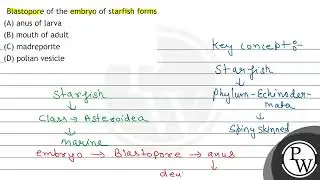 Blastopore of the embryo of starfish forms
(A) anus of larva
(B) mouth of adult
(C) madreporite
(D) polian vesicle
Key concept :-
Starfish
Phylum - Echinoder-
mata
Spiny skinned
Starfish
Class → Asteroidea
marine
embryo → Blastopore → anus
deu
PW